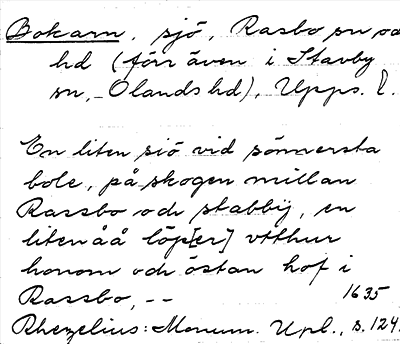 Bokarn, sjö, Rasbo sn och
hd (förr även i Stavby
sn, Olands hd), Upps. l.
En liten siö vid sönnersta
bole, på skogen millan
Rassbo och stabbÿ, en
liten åå löp[er] vtthur
honom och östan hof i
Rassbo, --
1635
Rhezelius: Monum. Upl., s. 124.